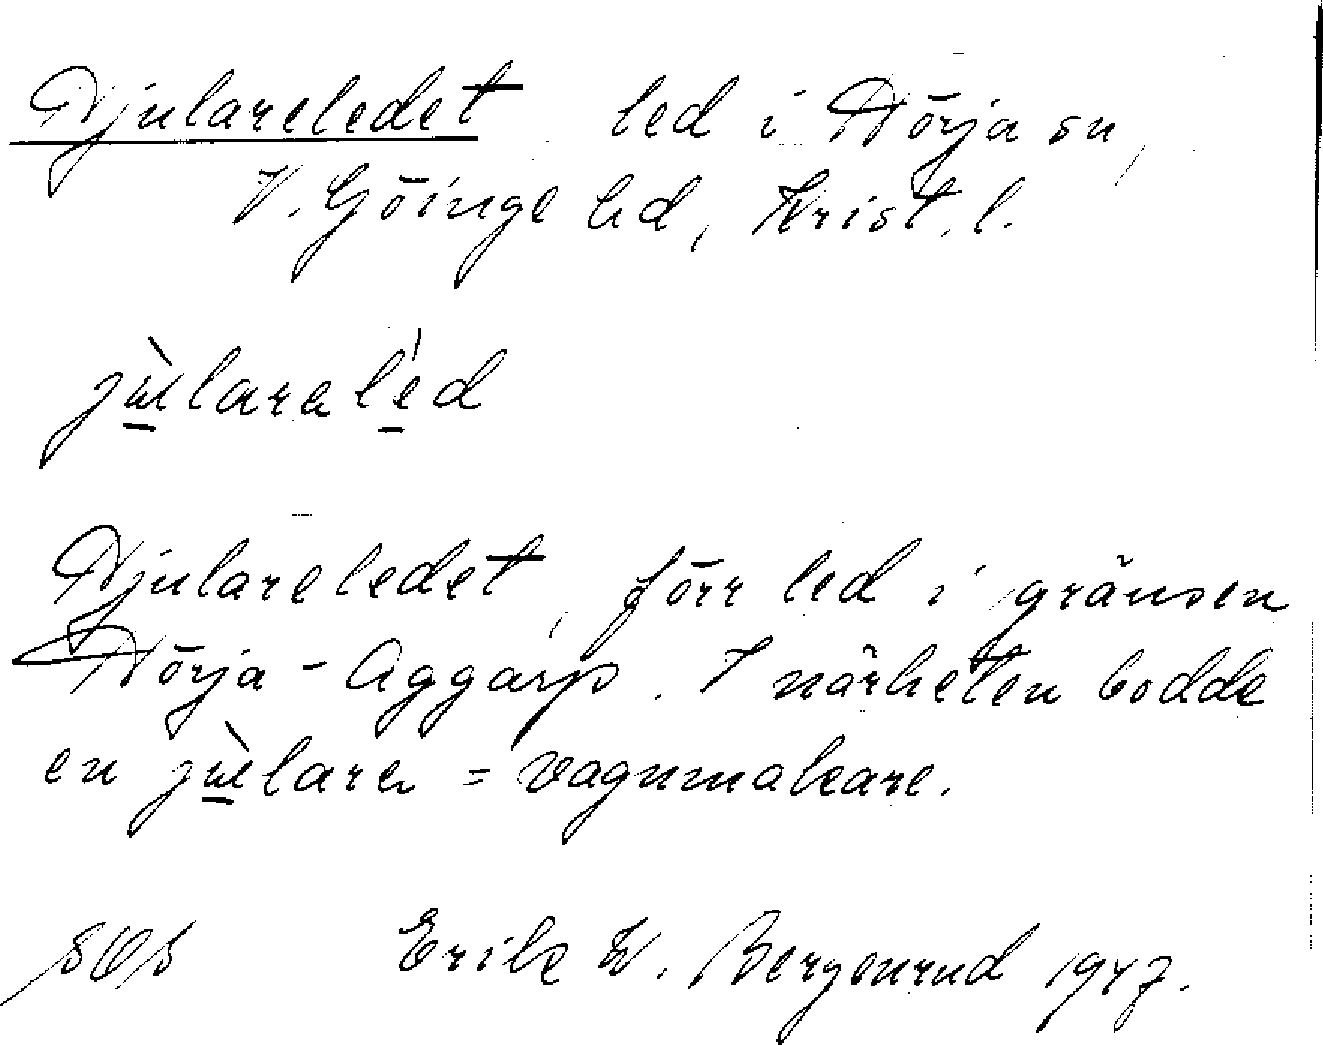 Hjulareledet, led i Nörja sn,
V. Göinge hd, Krist. l.
jùlaraléd
Hjulareledet, förr led i gränsen
Nörja - Aggarp. I närheten bodde
en jùlara = vagnmakare.
Erik W. Bergenrud 1947.